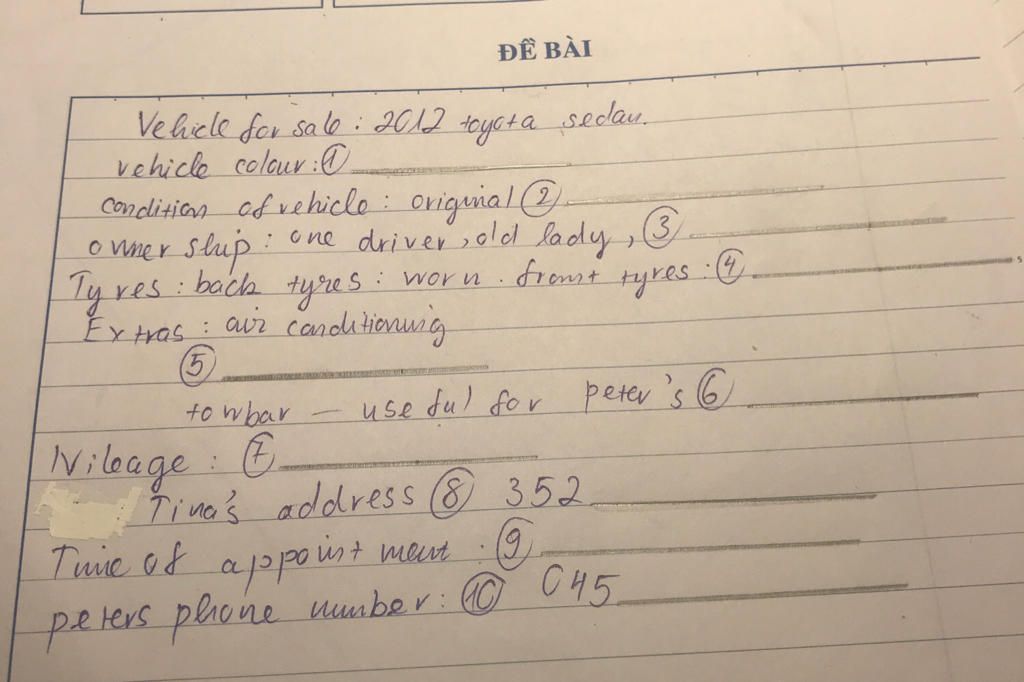 ĐỀ BÀI
Vehicle for sale: 2012 toyota sedan.
vehicle colour: ①
condition of vehicle: original ②
owner ship: one driver, old lady, ③
Tyres: back tyres: worn. front tyres: ④ s
Extras: air conditioning
⑤
towbar — useful for peter's ⑥
Mileage: ⑦
Tina's address ⑧ 352
Time of appointment: ⑨
peters phone number: ⑩ 045